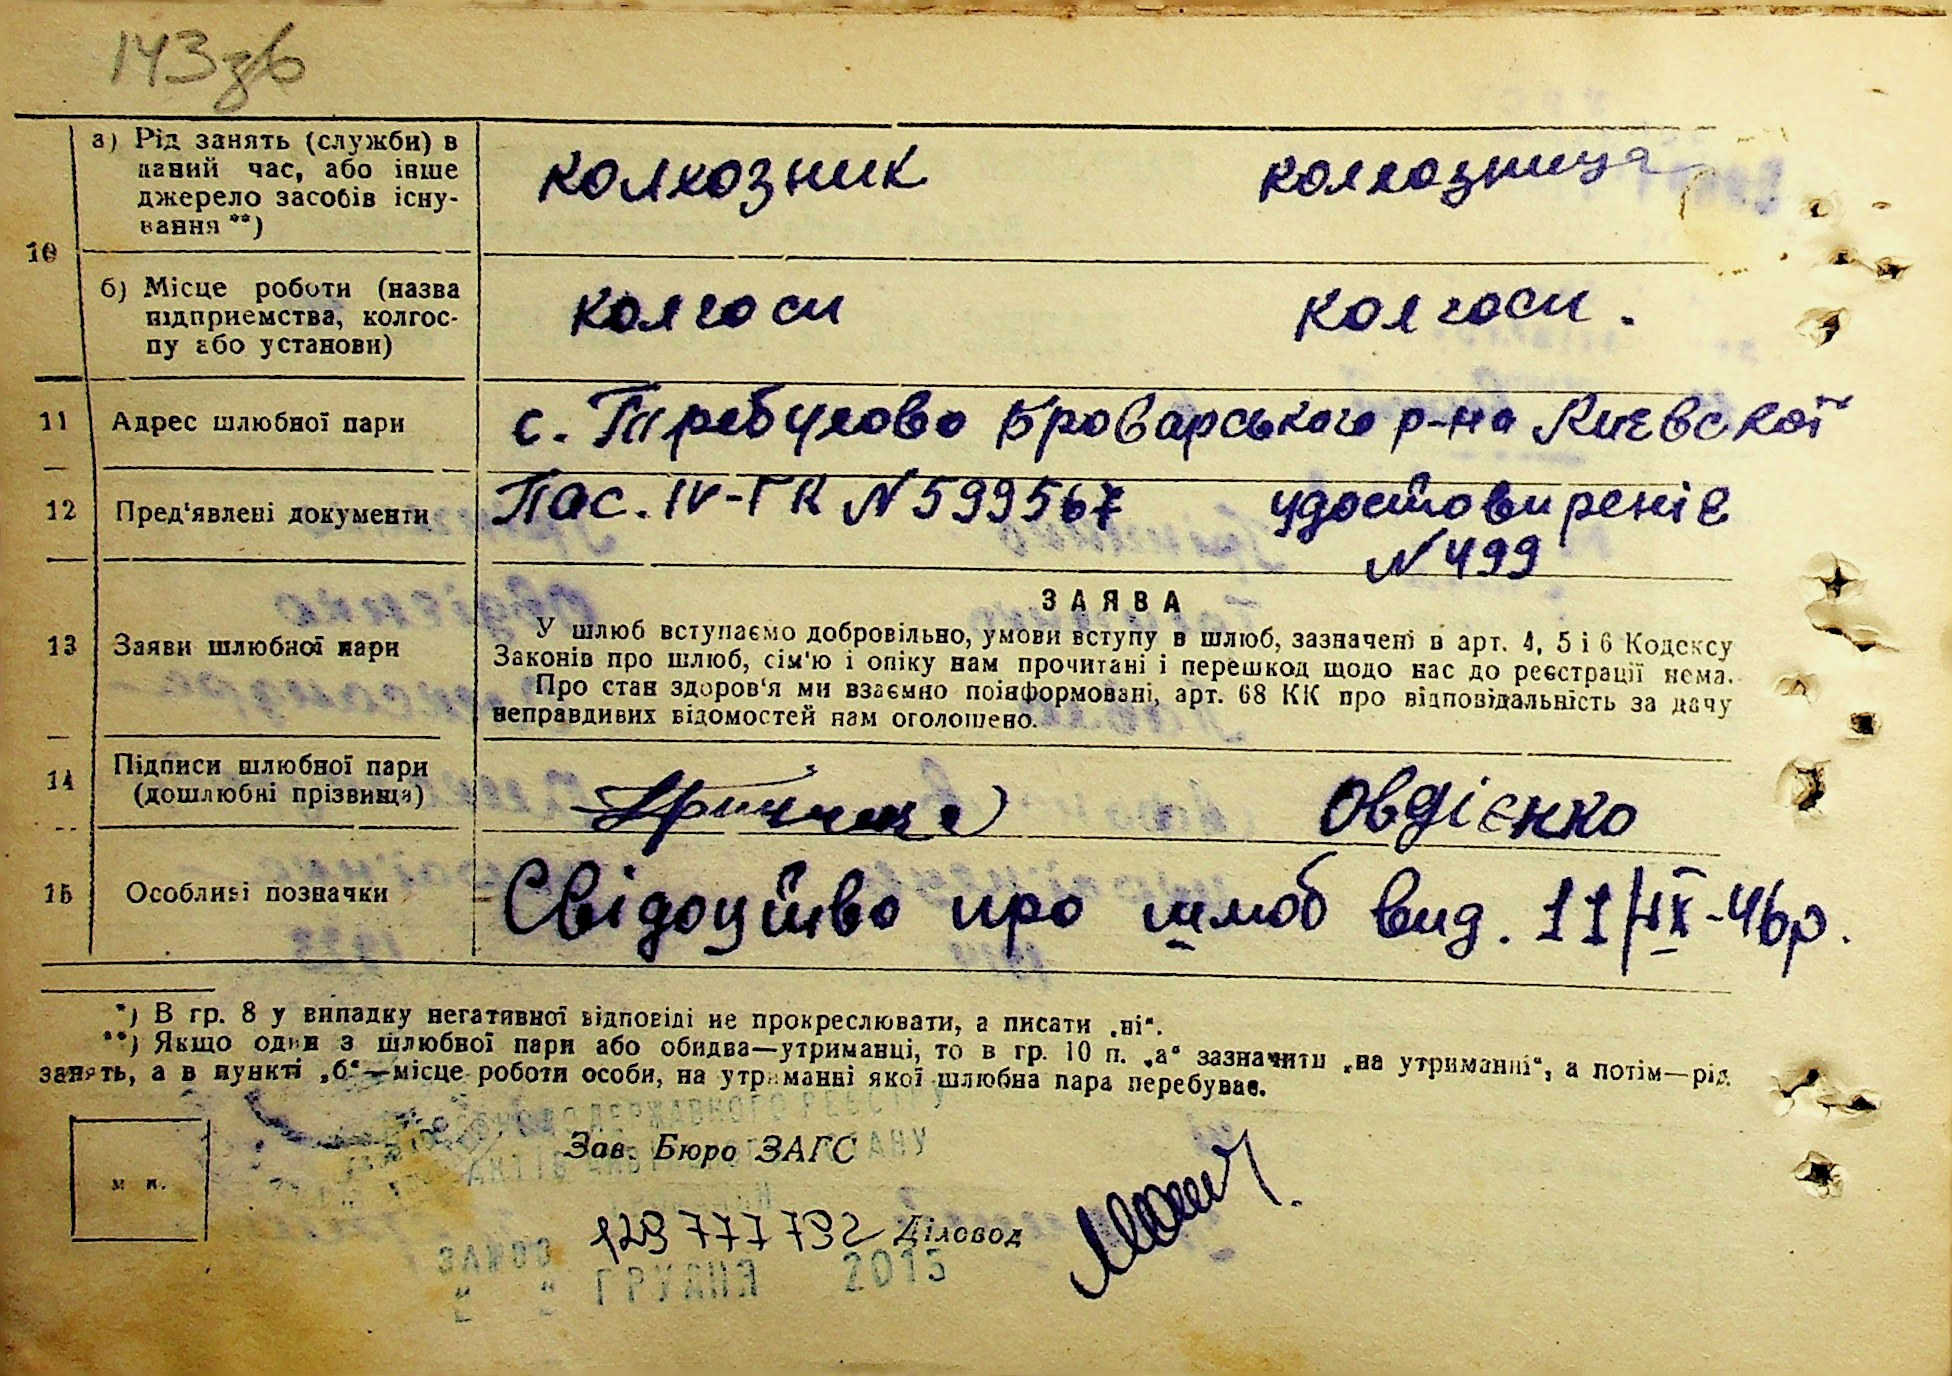 143зв
10
а) Рід занять (служби) в
даний час, або інше
джерело засобів існу-
вання **)
колхозник колхозница
б) Місце роботи (назва
підприємства, колгос-
пу або установи)
колгосп колгосп.
11 Адрес шлюбної пари с. Требухово Броварського р-на Киевскої
12 Пред'явлені документи Пас. IV-ГК N 599567 удостовиреніє
N 499
ЗАЯВА
13 Заяви шлюбної пари
У шлюб вступаємо добровільно, умови вступу в шлюб, зазначені в арт. 4, 5 і 6 Кодексу
Законів про шлюб, сім'ю і опіку нам прочитані і перешкод щодо нас до реєстрації нема.
Про стан здоров'я ми взаємно поінформовані, арт. 68 КК про відповідальність за дачу
неправдивих відомостей нам оголошено.
14 Підписи шлюбної пари
(дошлюбні прізвища)
Овдієнко
15 Особливі позначки Свідоцтво про шлюб вид. 11/IX-46р.
*) В гр. 8 у випадку негативної відповіді не прокреслювати, а писати „ні“.
**) Якщо один з шлюбної пари або обидва—утриманці, то в гр. 10 п. „а“ зазначити „на утриманні“, а потім—рід
занять, а в пункті „б“—місце роботи особи, на утриманні якої шлюбна пара перебуває.
ДЕРЖАВНОГО РЕЄСТРУ
Зав. Бюро ЗАГС
м. п.
129777792 Діловод
ГРУДНЯ 2015